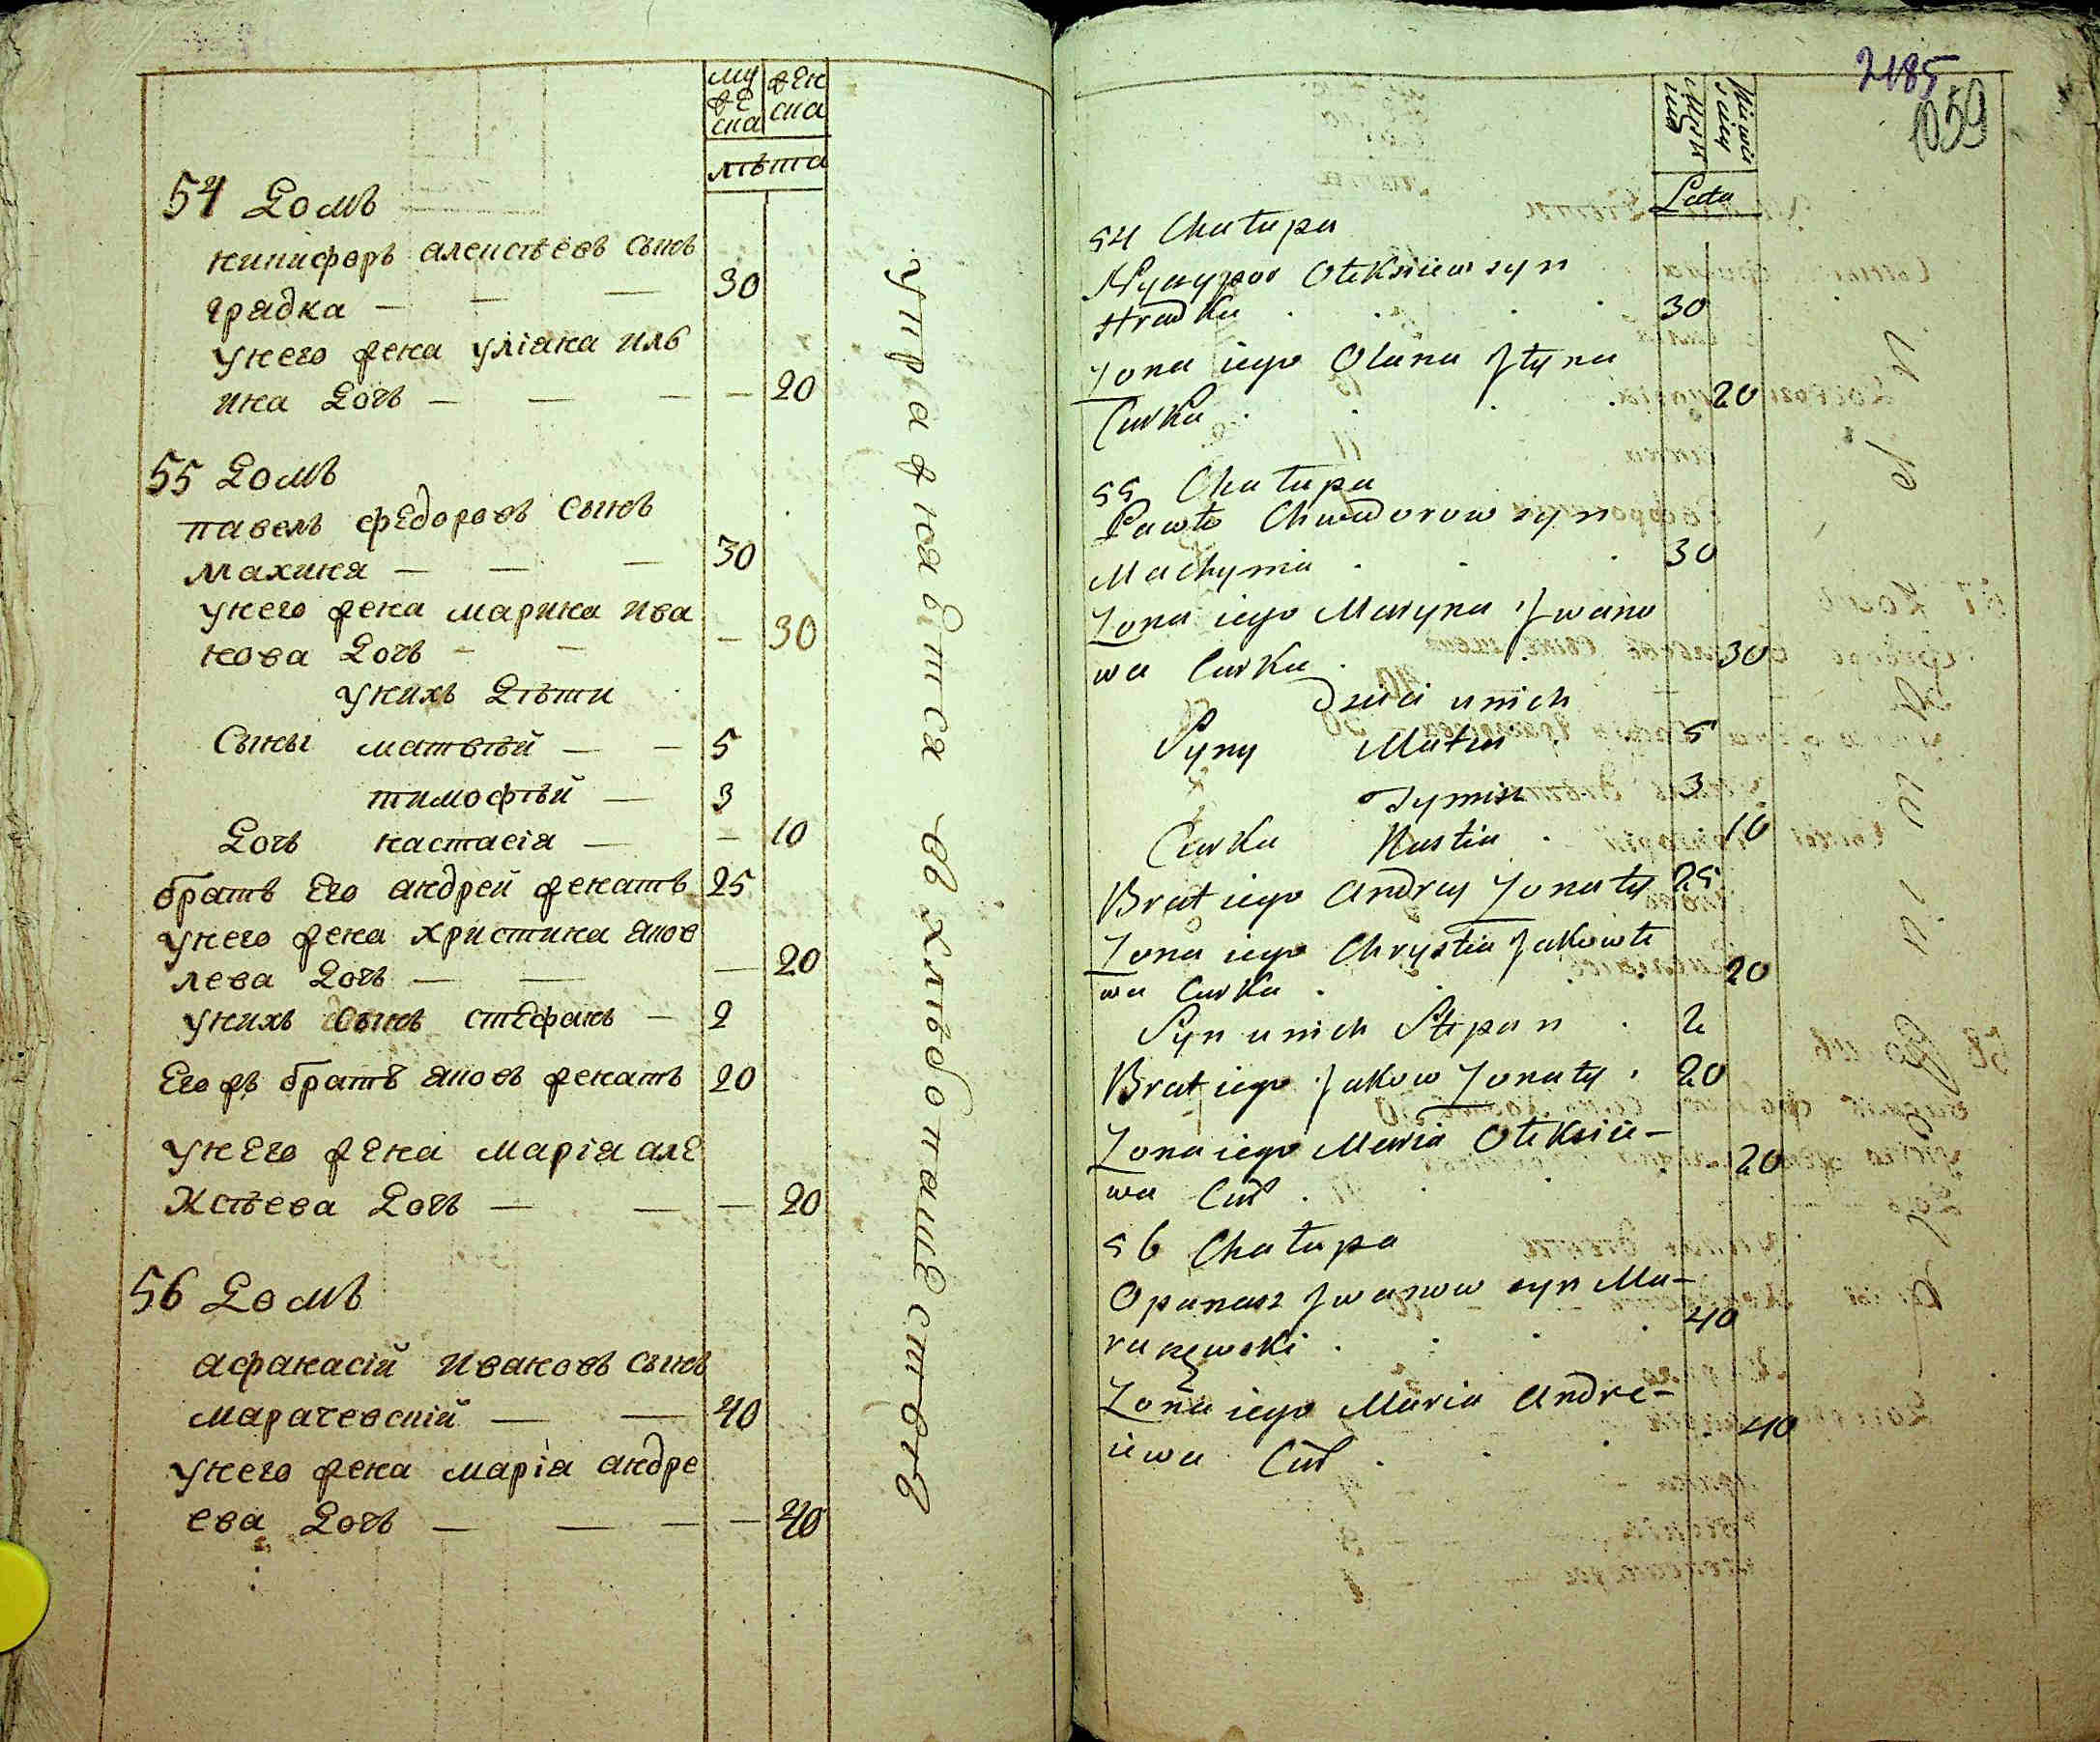 му
же
ска
жен
ска
лѣта
54 Домъ
никифоръ алексѣевъ сынъ
градка — — — 30
унего жена уліана иль
ина дочь — — — — 20
55 Домъ
павелъ федоровъ сынъ
махиня — — — 30
унего жена марина ива
нова дочь — — — 30
унихъ дѣти
Сыны матвѣй — — 5
тимофѣй — 3
Дочь настасія — — 10
братъ Его андрей женатъ 25
унего жена христина яков
лева дочь — — — 20
унихъ сынъ стефанъ — 2
Его жъ братъ яковъ женатъ 20
унего жена марія але
ксѣева дочь — — — 20
56 Домъ
афанасій ивановъ сынъ
марачевскій — — 40
унего жена марія андре
ева дочь — — — — 40
упражняется въ хлѣбопашествѣ
2185
1059
Lata
54 Chałupa
Nyczypor Oleksiiew syn
Hradka . . . 30
Żona iego Olana Jłyna
Curka . . . . 20
55 Chałupa
Pawło Chwedorow syn
Machynia . . . 30
Żona iego Maryna Jwano
wa Curka . . 30
Dzieci unich
Syny Matwi . 5
Tymisz 3
Curka Nastia . 10
Brat iego Andrey Żonaty 25
Żona iego Chrystia Jakowle
wa Curka . . . 20
Syn unich Stepan . 2
Brat iego Jakow Żonaty . 20
Żona iego Maria Oleksiie-
wa Cur . . . 20
56 Chałupa
Opanasz Jwanow syn Ma-
raczewski . . . . 40
Żona iego Maria Andre-
iewa Cur . . . . 40